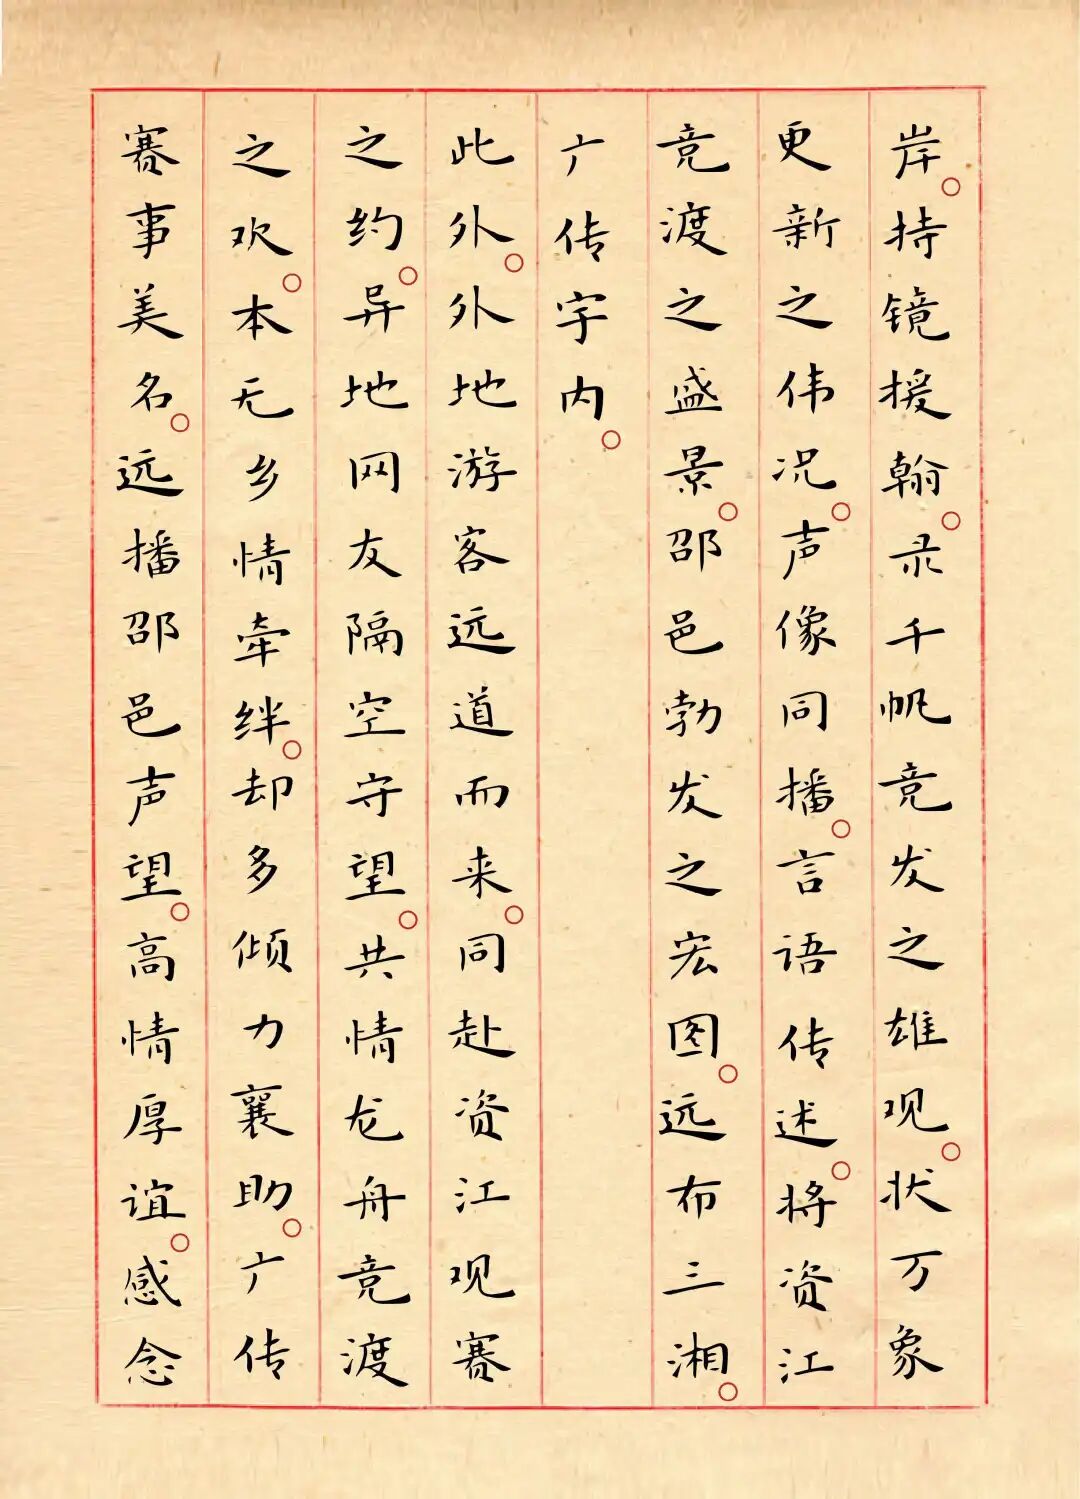 岸。持镜援翰。录千帆竞发之雄观。状万象
更新之伟况。声像同播。言语传述。将资江
竞渡之盛景。邵邑勃发之宏图。远布三湘。
广传宇内。
此外。外地游客远道而来。同赴资江观赛
之约。异地网友隔空守望。共情龙舟竞渡
之欢。本无乡情牵绊。却多倾力襄助。广传
赛事美名。远播邵邑声望。高情厚谊。感念